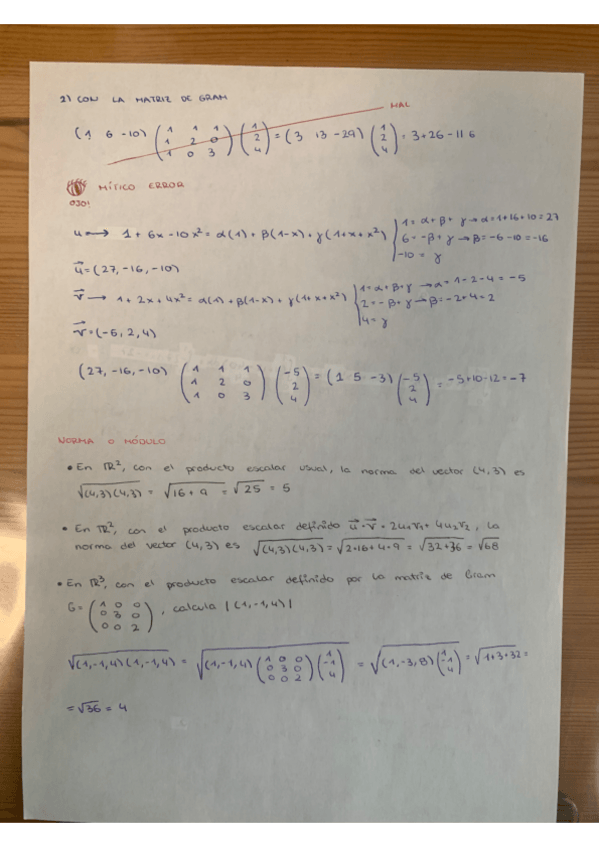 2) CON LA MATRIZ DE GRAM
MAL
(1 6 -10) (1 1 1 / 1 2 0 / 1 0 3) (1 / 2 / 4) = (3 13 -29) (1 / 2 / 4) = 3+26-116
OJO! MÍTICO ERROR
u → 1 + 6x - 10x² = α(1) + β(1-x) + γ(1+x+x²) { 1 = α + β + γ → α = 1+16+10 = 27
6 = -β + γ → β = -6-10 = -16
-10 = γ
u⃗ = (27, -16, -10)
v⃗ → 1 + 2x + 4x² = α(1) + β(1-x) + γ(1+x+x²) { 1 = α + β + γ → α = 1-2-4 = -5
2 = -β + γ → β = -2+4 = 2
4 = γ
v⃗ = (-5, 2, 4)
(27, -16, -10) (1 1 1 / 1 2 0 / 1 0 3) (-5 / 2 / 4) = (1 5 -3) (-5 / 2 / 4) = -5+10-12 = -7
NORMA O MÓDULO
• En ℝ², con el producto escalar usual, la norma del vector (4,3) es
√(4,3)(4,3) = √16 + 9 = √25 = 5
• En ℝ², con el producto escalar definido u⃗·v⃗ = 2u₁v₁ + 4u₂v₂, la
norma del vector (4,3) es √(4,3)(4,3) = √2·16+4·9 = √32+36 = √68
• En ℝ³, con el producto escalar definido por la matriz de Gram
G = (1 0 0 / 0 3 0 / 0 0 2), calcula |(1,-1,4)|
√(1,-1,4)(1,-1,4) = √(1,-1,4) (1 0 0 / 0 3 0 / 0 0 2) (1 / -1 / 4) = √(1,-3,8) (1 / -1 / 4) = √1+3+32 =
= √36 = 4